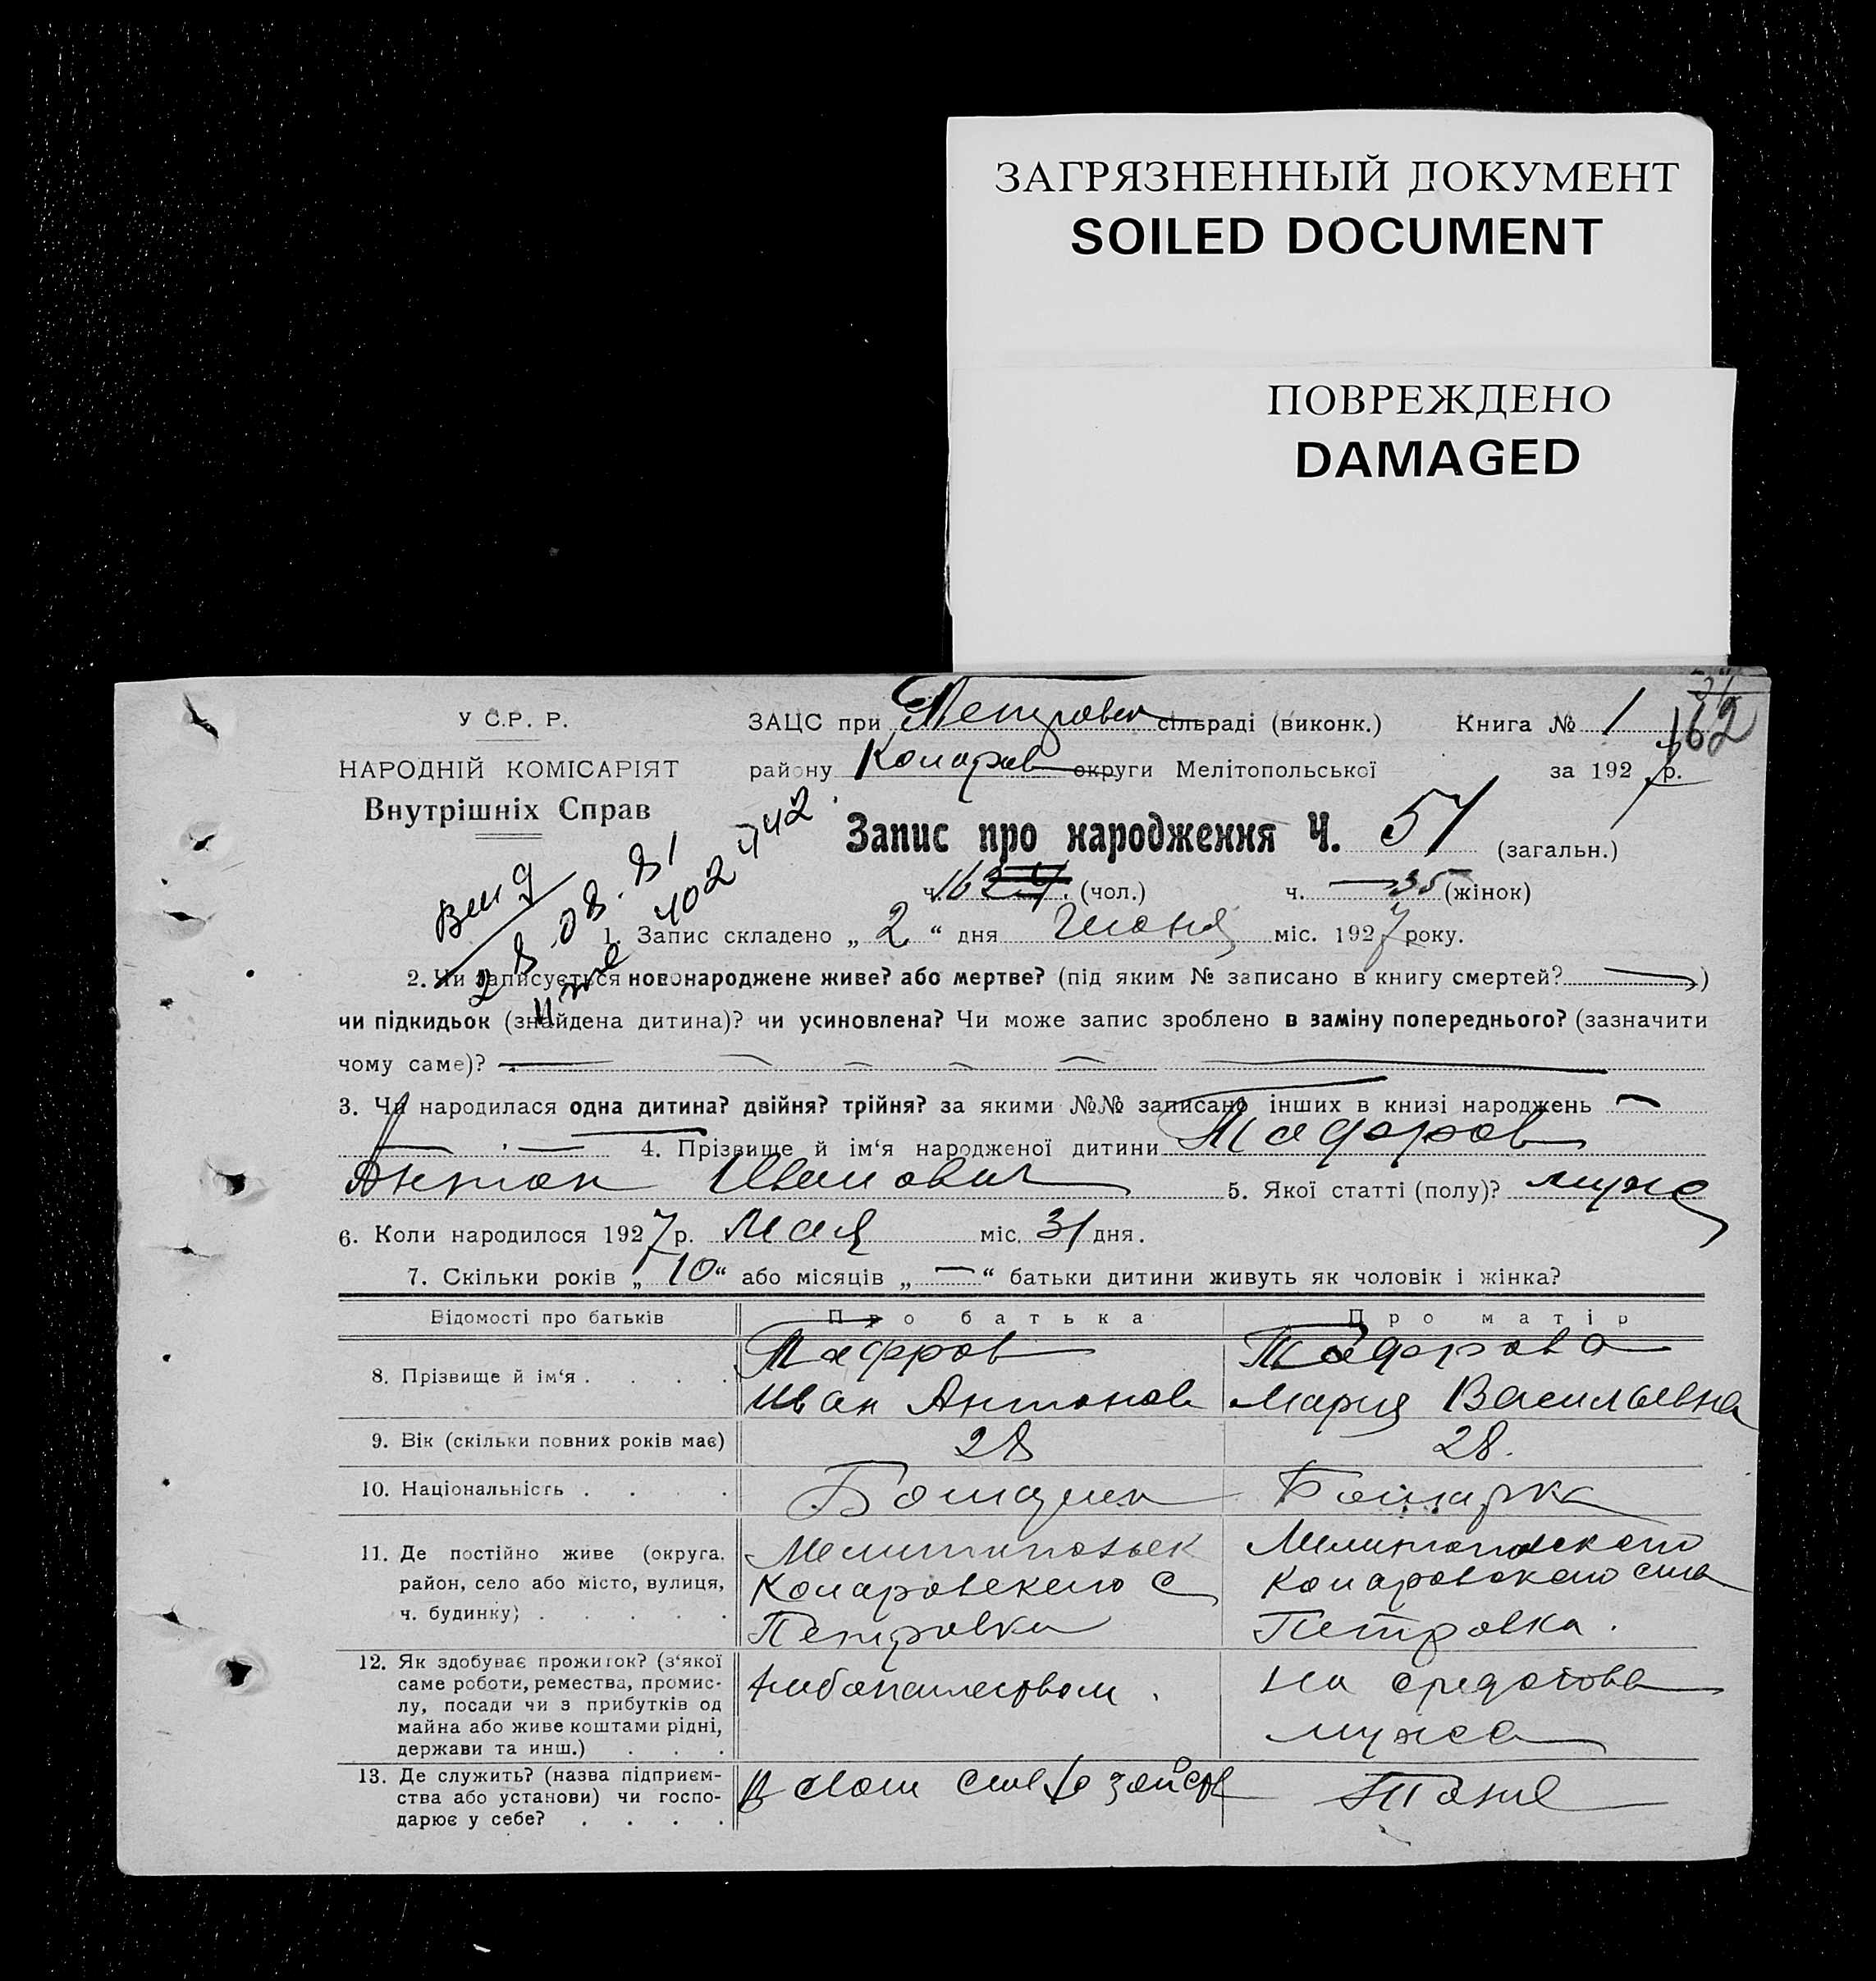 ЗАГРЯЗНЕННЫЙ ДОКУМЕНТ
SOILED DOCUMENT
ПОВРЕЖДЕНО
DAMAGED
У С.Р. Р.
НАРОДНІЙ КОМІСАРІЯТ
Внутрішніх Справ
ЗАЦС при Петровск сільраді (виконк.) Книга № 1 162
району Коларов округи Мелітопольської за 1927 р.
Запис про народження Ч. 57 (загальн.)
ч. 162 (чол.) ч. 35 (жінок)
28.08.81
402 742
1. Запис складено „ 2 “ дня Июня міс. 1927 року.
2. Чи записується новонароджене живе? або мертве? (під яким № записано в книгу смертей? )
чи підкидьок (знайдена дитина)? чи усиновлена? Чи може запис зроблено в заміну попереднього? (зазначити
чому саме)?
3. Чи народилася одна дитина? двійня? трійня? за якими №№ записано інших в книзі народжень —
4. Прізвище й ім‘я народженої дитини Тафоров
Антон Иванович 5. Якої статті (полу)? мужс
6. Коли народилося 1927 р. Мая міс. 31 дня.
7. Скільки років „ 10 “ або місяців „ — “ батьки дитини живуть як чоловік і жінка?
Відомості про батьків Про батька Про матір
8. Прізвище й ім‘я . . . . Тафров Тафорова
Иван Антонов Мария Васильевна
9. Вік (скільки повних років має) 28 28.
10. Національність . . . . Болгарка
11. Де постійно живе (округа, Мелитопольск Мелитопольского
район, село або місто, вулиця, Коларовского с Коларовского села
ч. будинку) . . . . . Петровка Петровка.
12. Як здобуває прожиток? (з‘якої
саме роботи, ремества, промис- Хлебопашеством. На средства
лу, посади чи з прибутків од
майна або живе коштами рідні, мужа
держави та инш.) . . .
13. Де служить? (назва підприєм- В своем
ства або установи) чи госпо- Тоже
дарює у себе? . . . .